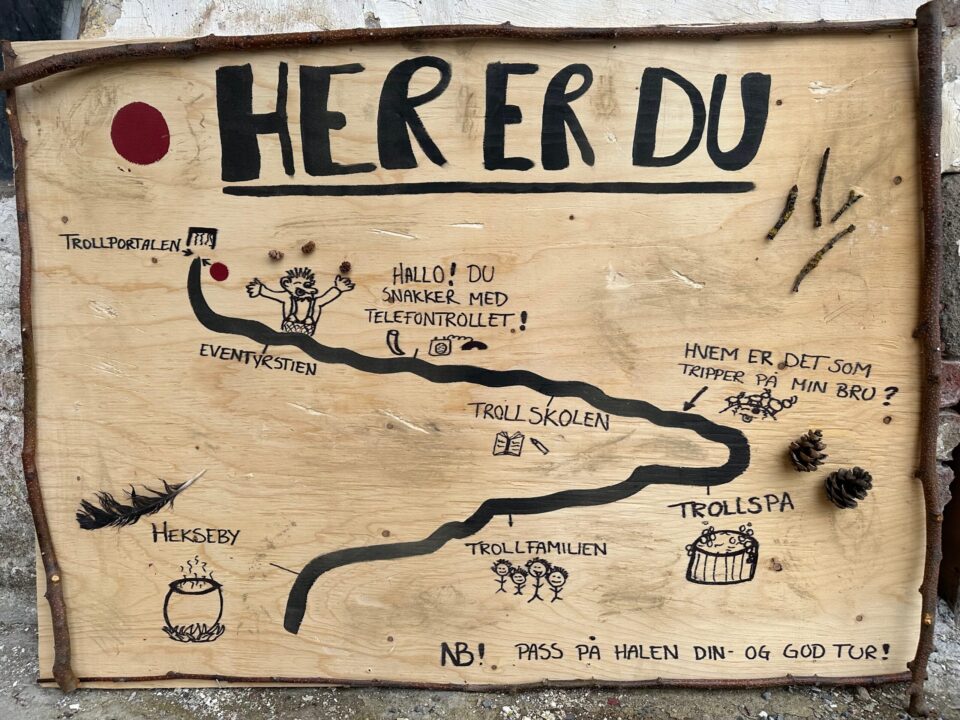 HER ER DU
TROLLPORTALEN
HALLO! DU
SNAKKER MED
TELEFONTROLLET!
EVENTYRSTIEN
HVEM ER DET SOM
TRIPPER PÅ MIN BRU?
TROLLSKOLEN
TROLLSPA
HEKSEBY
TROLLFAMILIEN
NB! PASS PÅ HALEN DIN- OG GOD TUR!